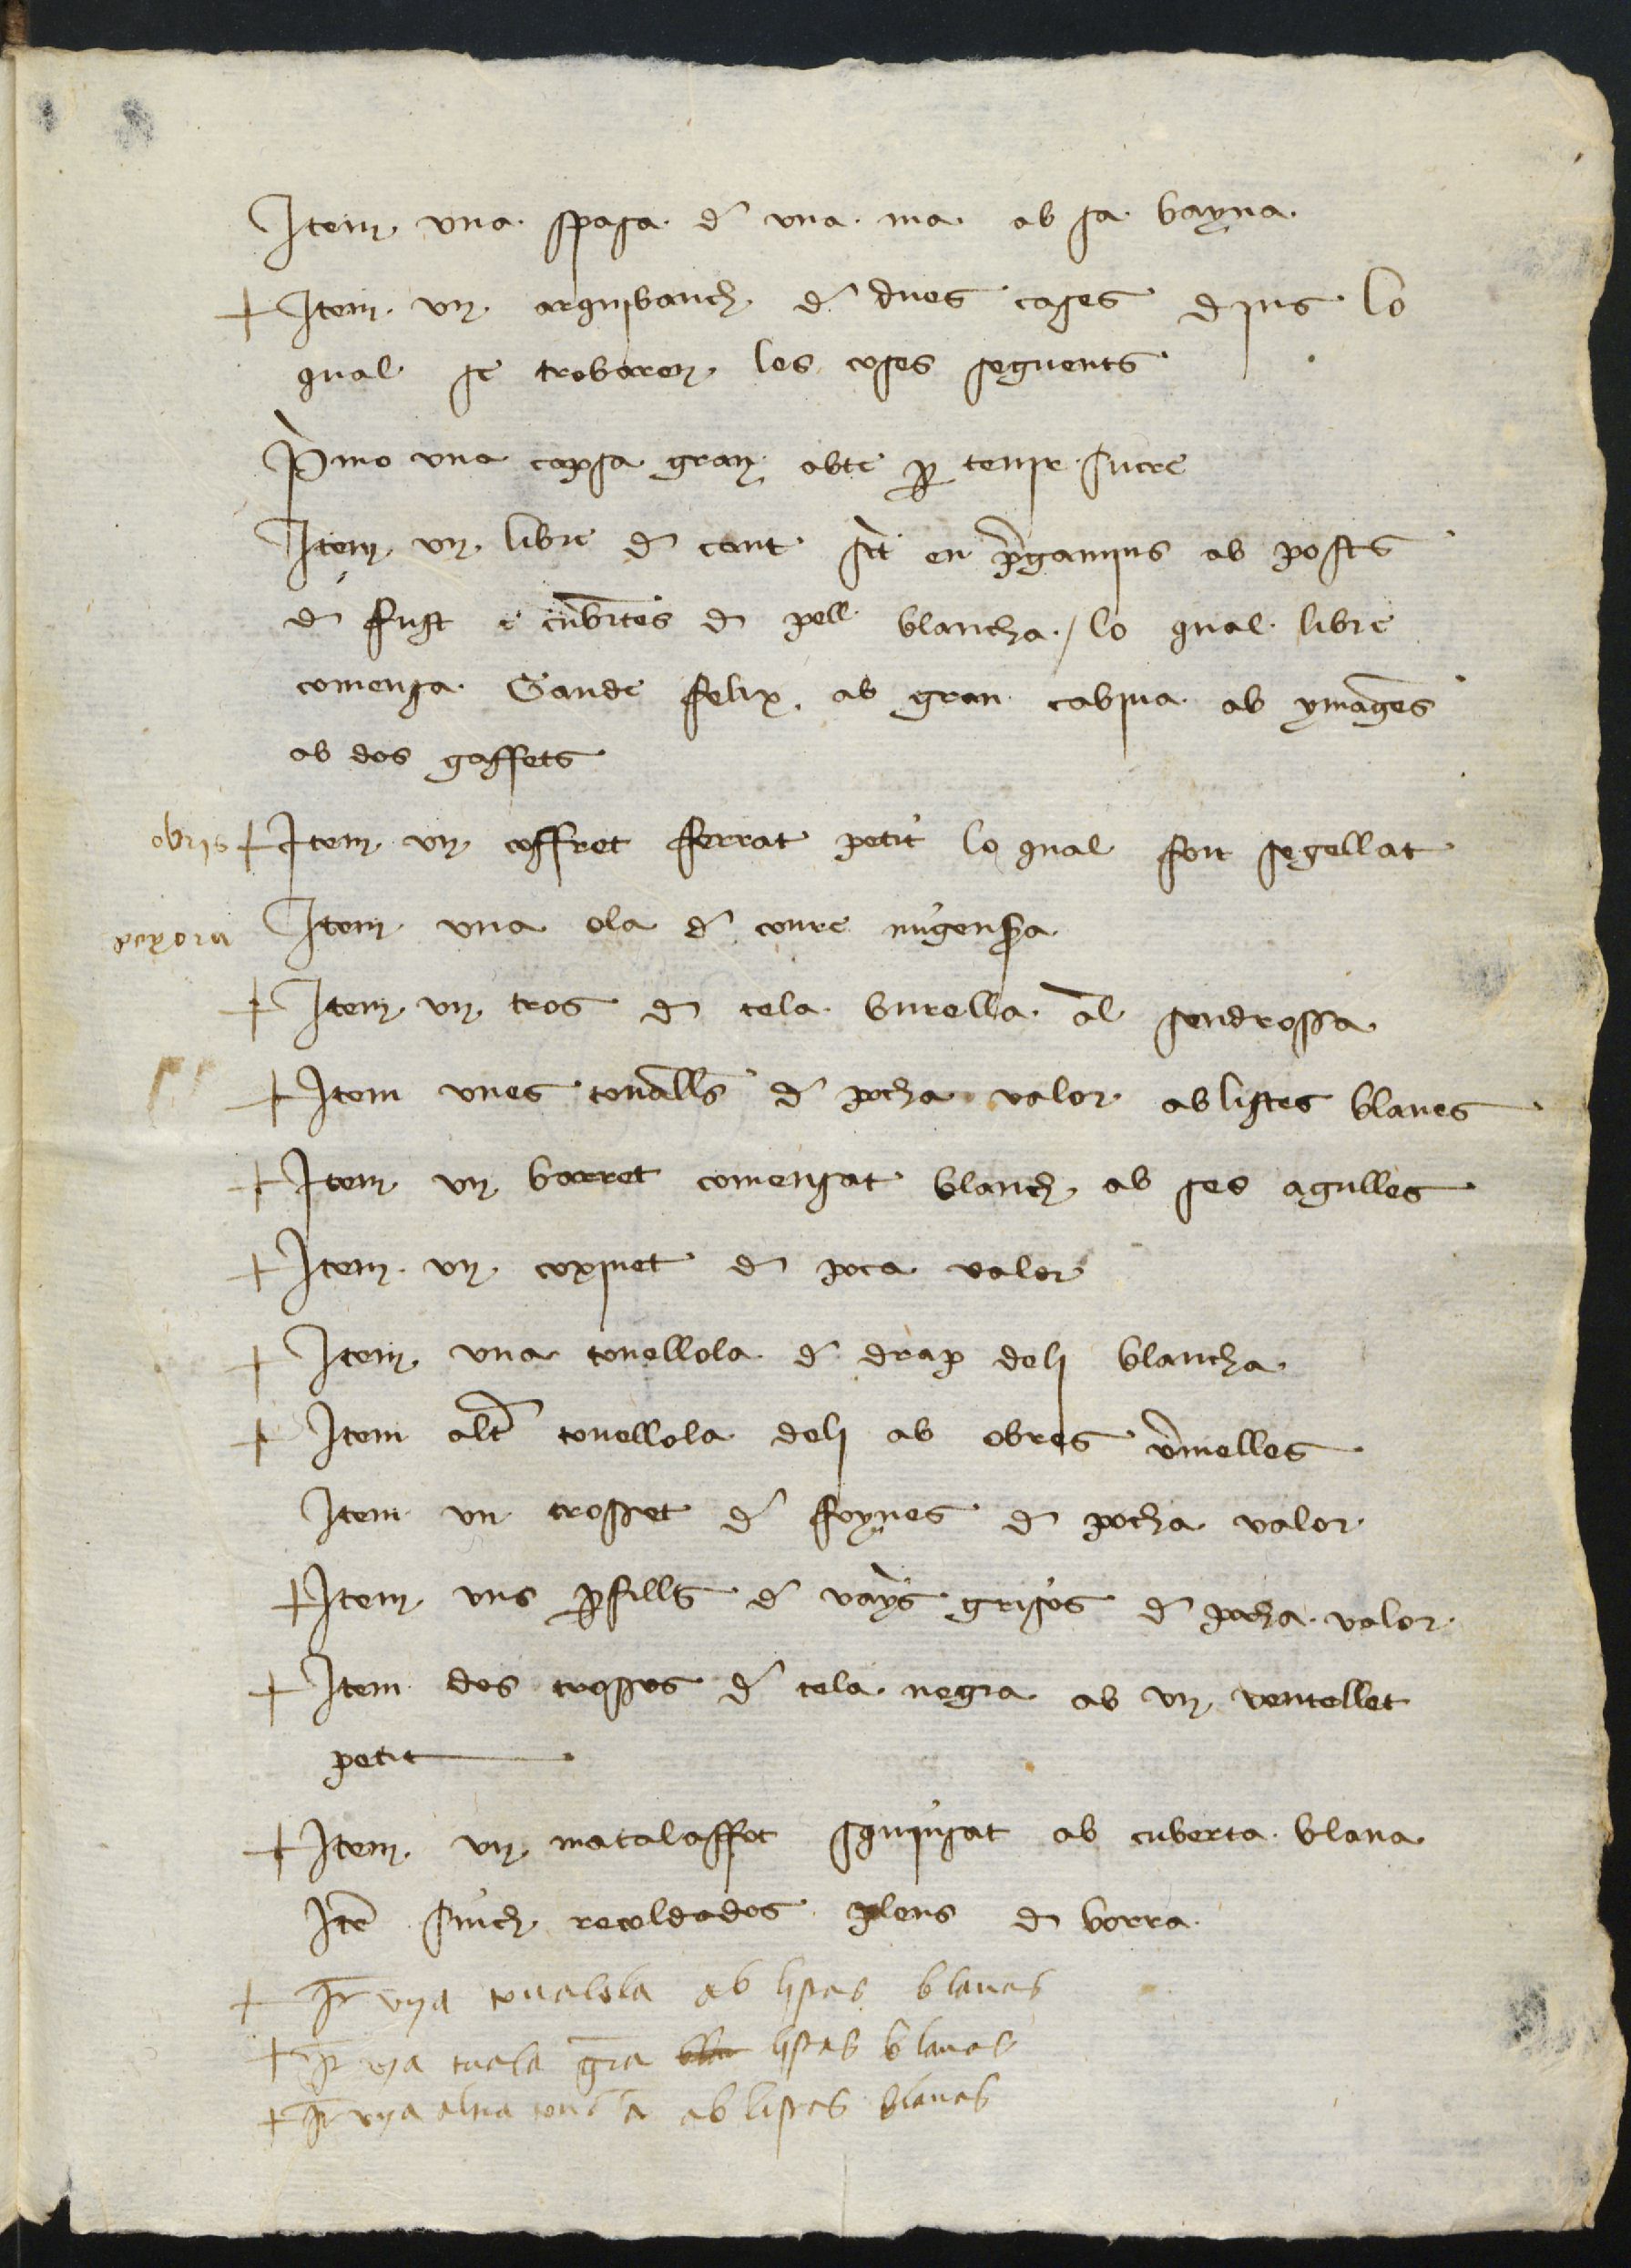 Item una spasa de una ma ab sa bayna
+ Item un arquibanch de dues cases dins lo
qual se trobaren les coses seguents
Primo una capsa gran abte per tenir sucre
Item un libre de cant scrit en pergamins ab posts
de fust e cubertes de pell blancha / lo qual libre
comensa Gaude felix ab gran cabina ab ymages
ab dos gaffets
obris + Item un coffret ferrat petit lo qual fon segellat
Item una ola de coure migensera
+ Item un tros de tela burella al sendrossa
+ Item unes tovalls de pocha valor ab listes blaves
+ Item un barret comensat blanch ab ses agulles
+ Item un coxinet de poca valor
+ Item una tovellola de drap de li blancha
+ Item altra tovellola de li ab obres vermelles
Item un trosset de foynes de pocha valor
+ Item uns perfills de vays grisos de pocha valor
+ Item dos trossos de tela negra ab un ventellet
petit
+ Item un matalaffet squinsat ab cuberta blava
Item sinch recoldados plens de borra
+ It una tovalola ab listas blavas
+ It una tuala gra listas blavas
+ It una altra ab listas blavas